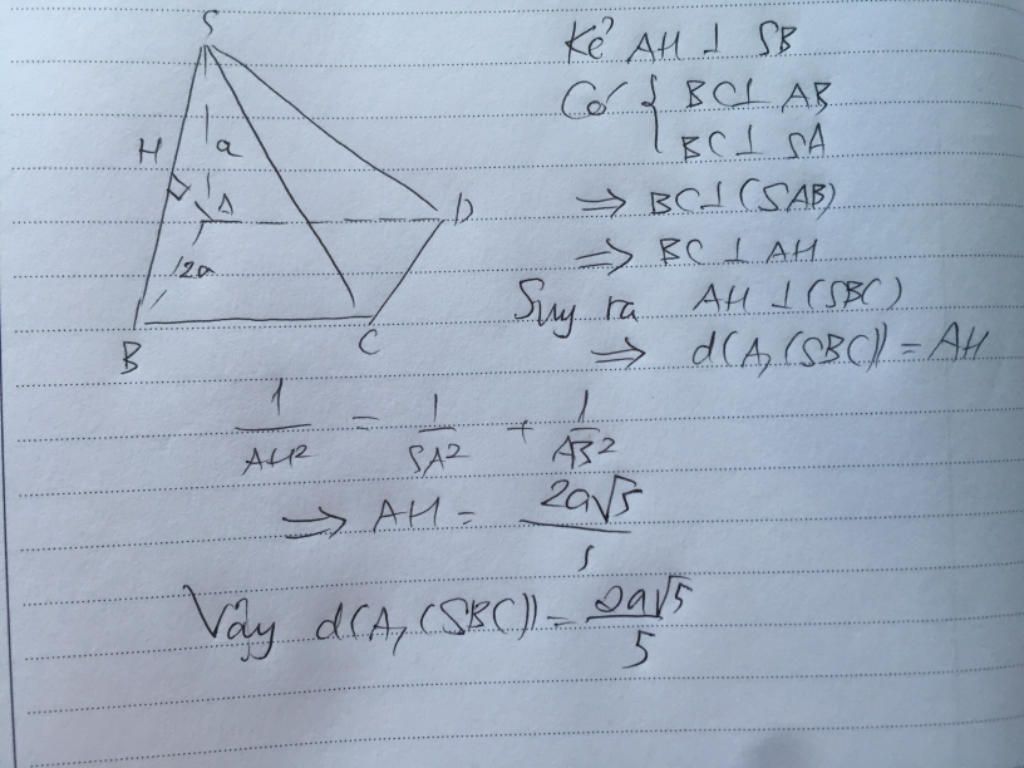 S
a
H
A
D
2a
B
C
Kẻ AH ⊥ SB
Có { BC ⊥ AB
BC ⊥ SA
⇒ BC ⊥ (SAB)
⇒ BC ⊥ AH
Suy ra AH ⊥ (SBC)
⇒ d(A, (SBC)) = AH
1/AH² = 1/SA² + 1/AB²
⇒ AH = 2a√5/5
Vậy d(A, (SBC)) = 2a√5/5